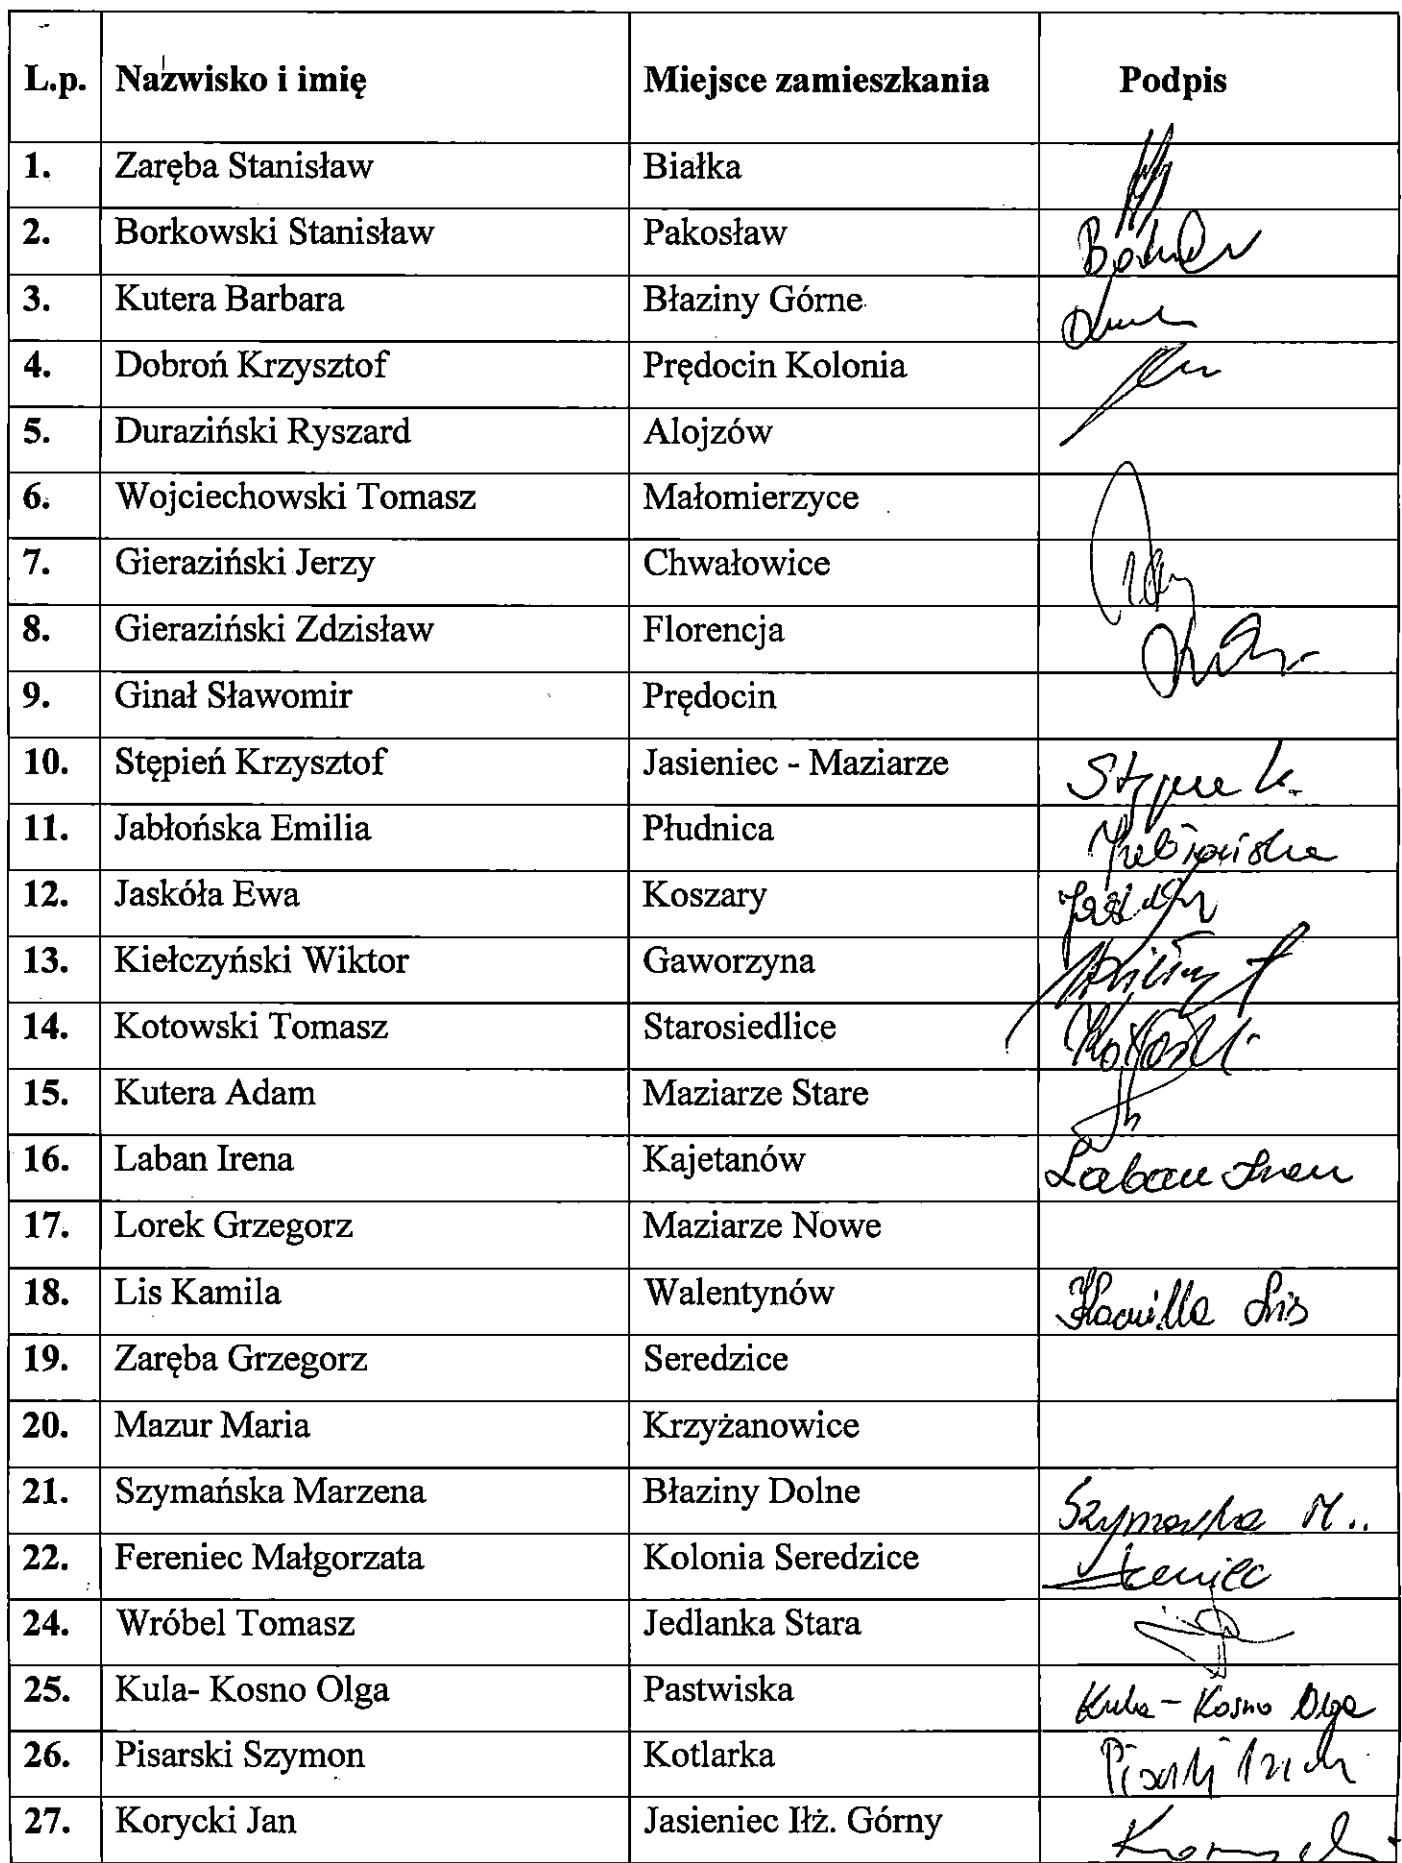 L.p. Nazwisko i imię Miejsce zamieszkania Podpis
1. Zaręba Stanisław Białka
2. Borkowski Stanisław Pakosław
3. Kutera Barbara Błaziny Górne
4. Dobroń Krzysztof Prędocin Kolonia
5. Duraziński Ryszard Alojzów
6. Wojciechowski Tomasz Małomierzyce
7. Gieraziński Jerzy Chwałowice
8. Gieraziński Zdzisław Florencja
9. Ginał Sławomir Prędocin
10. Stępień Krzysztof Jasieniec - Maziarze
11. Jabłońska Emilia Płudnica
12. Jaskóła Ewa Koszary
13. Kiełczyński Wiktor Gaworzyna
14. Kotowski Tomasz Starosiedlice
15. Kutera Adam Maziarze Stare
16. Laban Irena Kajetanów Laban Iren
17. Lorek Grzegorz Maziarze Nowe
18. Lis Kamila Walentynów Kamilla Lis
19. Zaręba Grzegorz Seredzice
20. Mazur Maria Krzyżanowice
21. Szymańska Marzena Błaziny Dolne Szymańska M..
22. Fereniec Małgorzata Kolonia Seredzice
24. Wróbel Tomasz Jedlanka Stara
25. Kula- Kosno Olga Pastwiska Kula - Kosno Olga
26. Pisarski Szymon Kotlarka
27. Korycki Jan Jasieniec Iłż. Górny